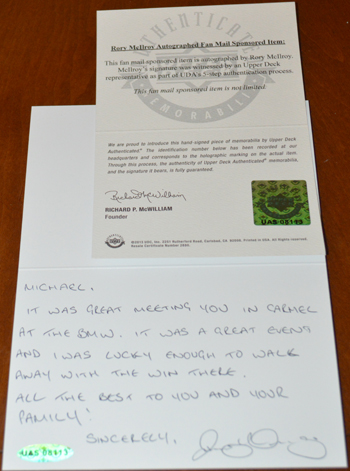 AUTHENTICATED
MEMORABILIA
Rory McIlroy Autographed Fan Mail Sponsored Item:
This fan mail sponsored item is autographed by Rory McIlroy.
McIlroy's signature was witnessed by an Upper Deck
representative as part of UDA's 5-step authentication process.
This fan mail sponsored item is not limited.
We are proud to introduce this hand signed piece of memorabilia by Upper Deck
Authenticated. The identification number below has been recorded at our
headquarters and corresponds to the holographic marking on the actual item.
Through this process, the authenticity of Upper Deck Authenticated memorabilia,
and the signature it bears, is fully guaranteed.
Richard P. McWilliam
RICHARD P. McWILLIAM
Founder
UAS 08199
MICHAEL,
IT WAS GREAT MEETING YOU IN CARMEL
AT THE BMW. IT WAS A GREAT EVENT
AND I WAS LUCKY ENOUGH TO WALK
AWAY WITH THE WIN THERE.
ALL THE BEST TO YOU AND YOUR
FAMILY!
SINCERELY,
UAS 08199